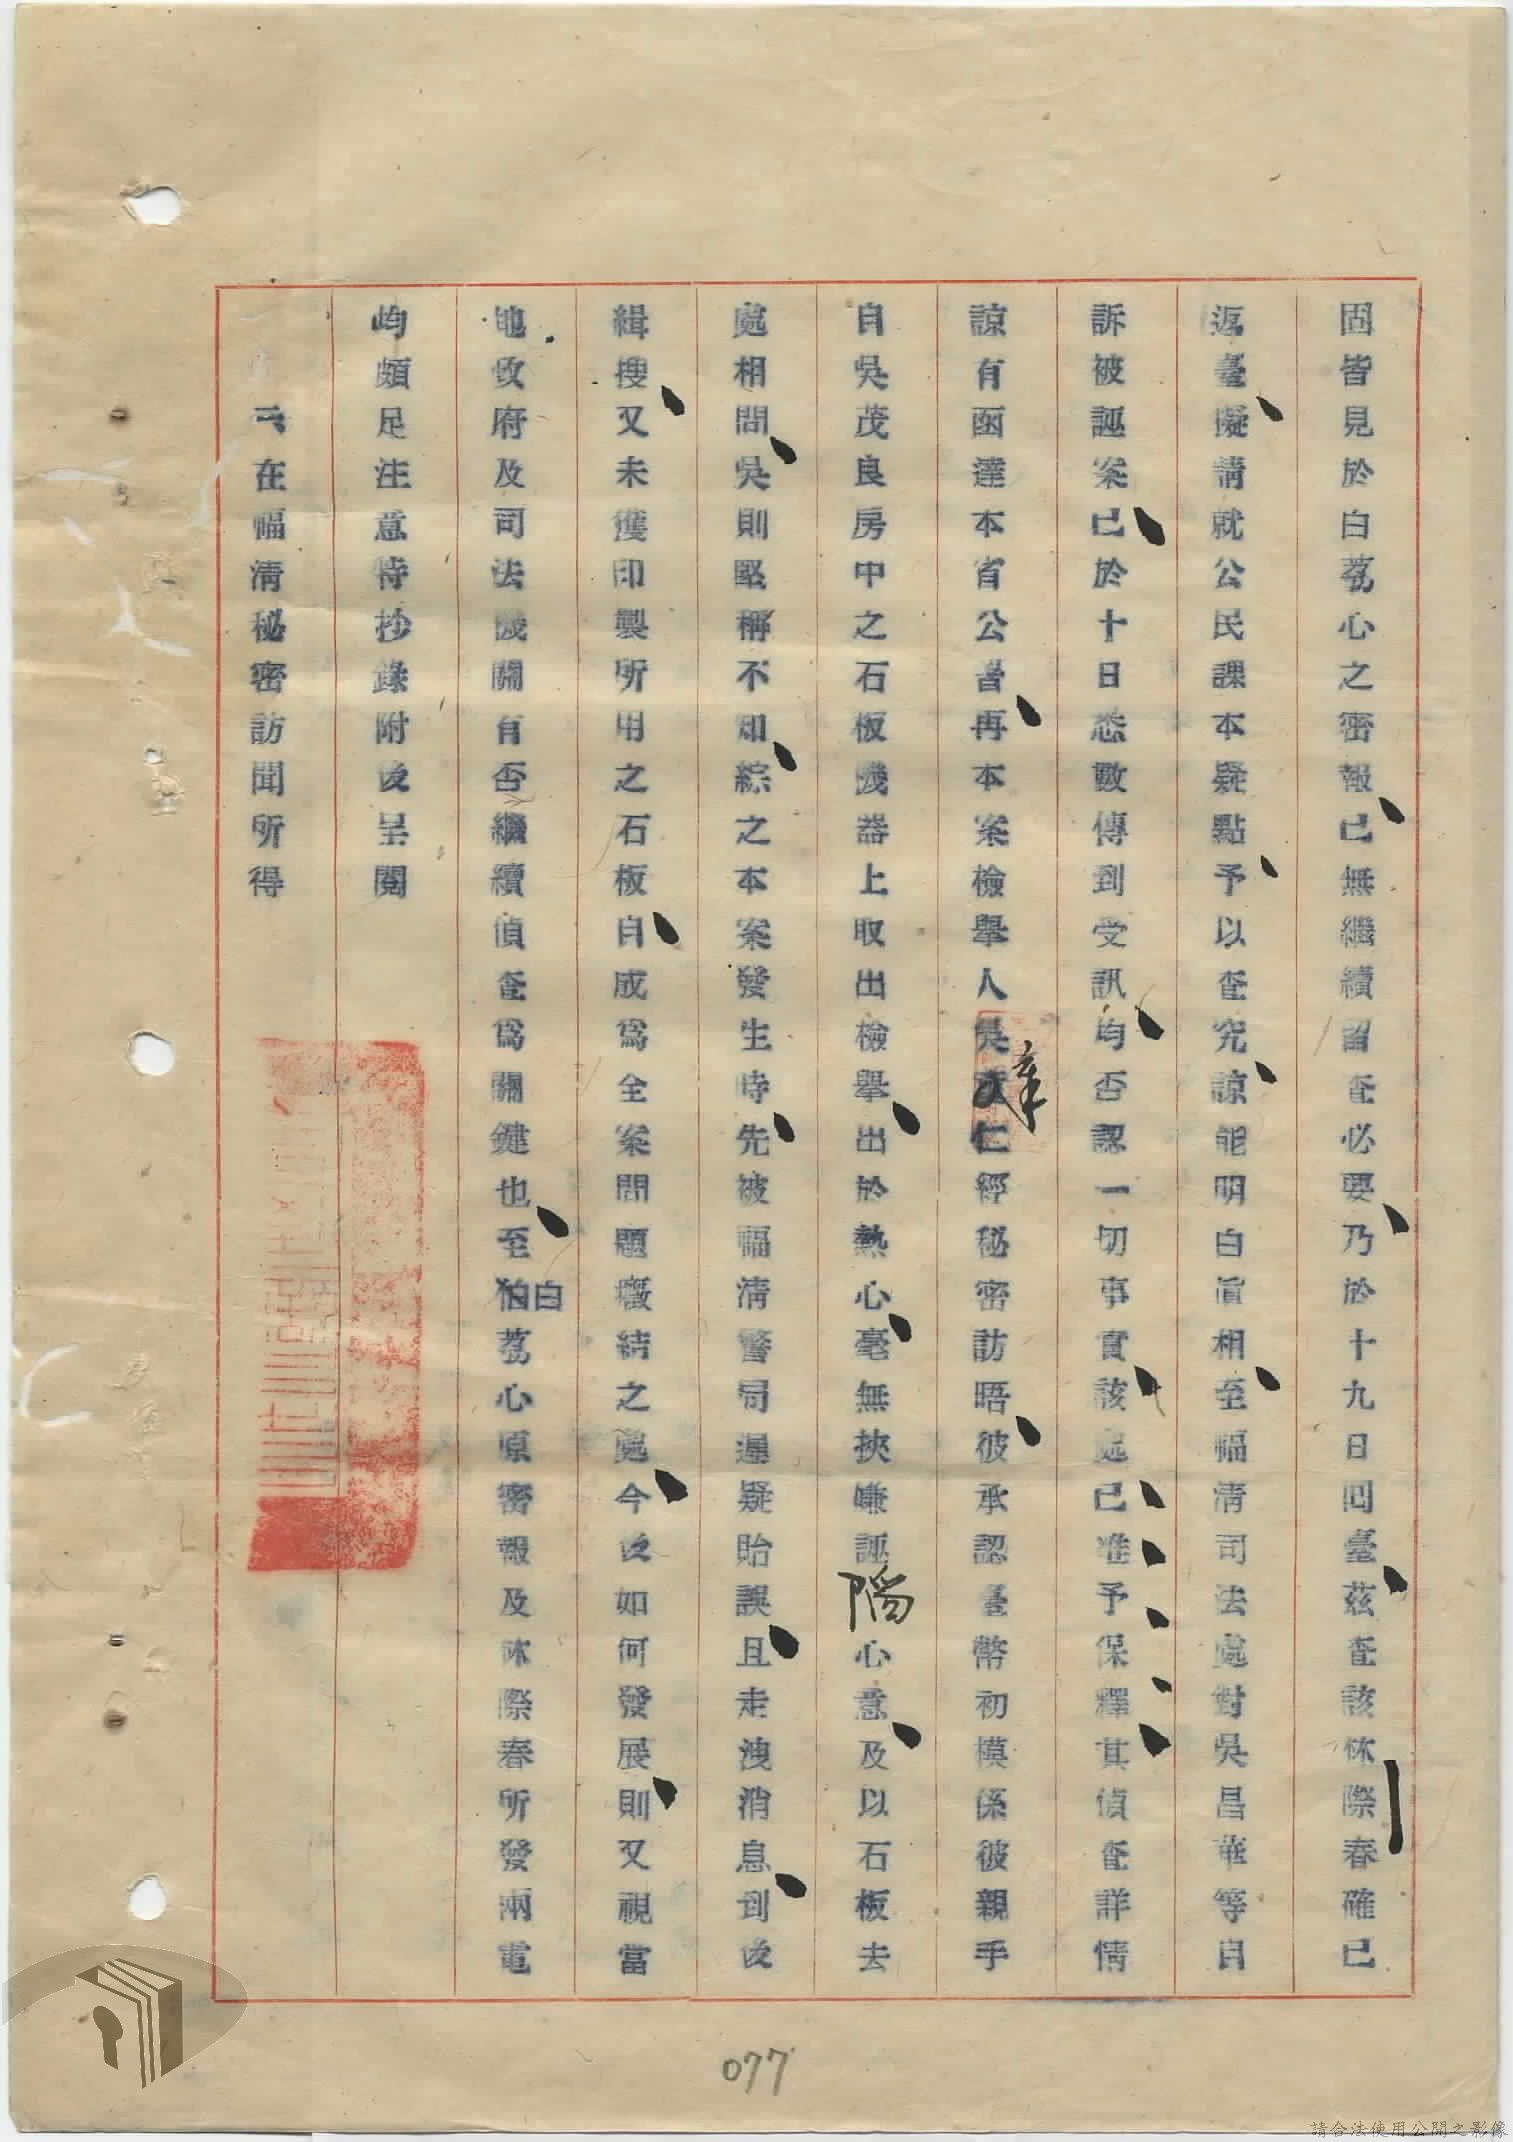 固皆見於白荔心之密報已無繼續留查必要乃於十九日回臺茲查該林際春確已
返臺擬請就公民課本疑點予以查究諒能明白眞相至福清司法處對吳昌華等自
訴被誣案已於十日悉數傳到受訊均否認一切事實該處已准予保釋其偵查詳情
諒有函達本省公署再本案檢舉人吳章仁經秘密訪晤彼承認臺幣初模係彼親手
自吳茂良房中之石板機器上取出檢舉出於熱心毫無挾嫌誣陷心意及以石板去
處相問吳則堅稱不知綜之本案發生時先被福清警局遲疑貽誤且走洩消息到後
緝搜又未獲印製所用之石板自成爲全案問題癥結之處今後如何發展則又視當
地政府及司法機關有否繼續偵查爲關鍵也至白荔心原密報及林際春所發兩電
均頗足注意特抄錄附後呈閱
二、在福清秘密訪聞所得
077
請合法使用公開之影像